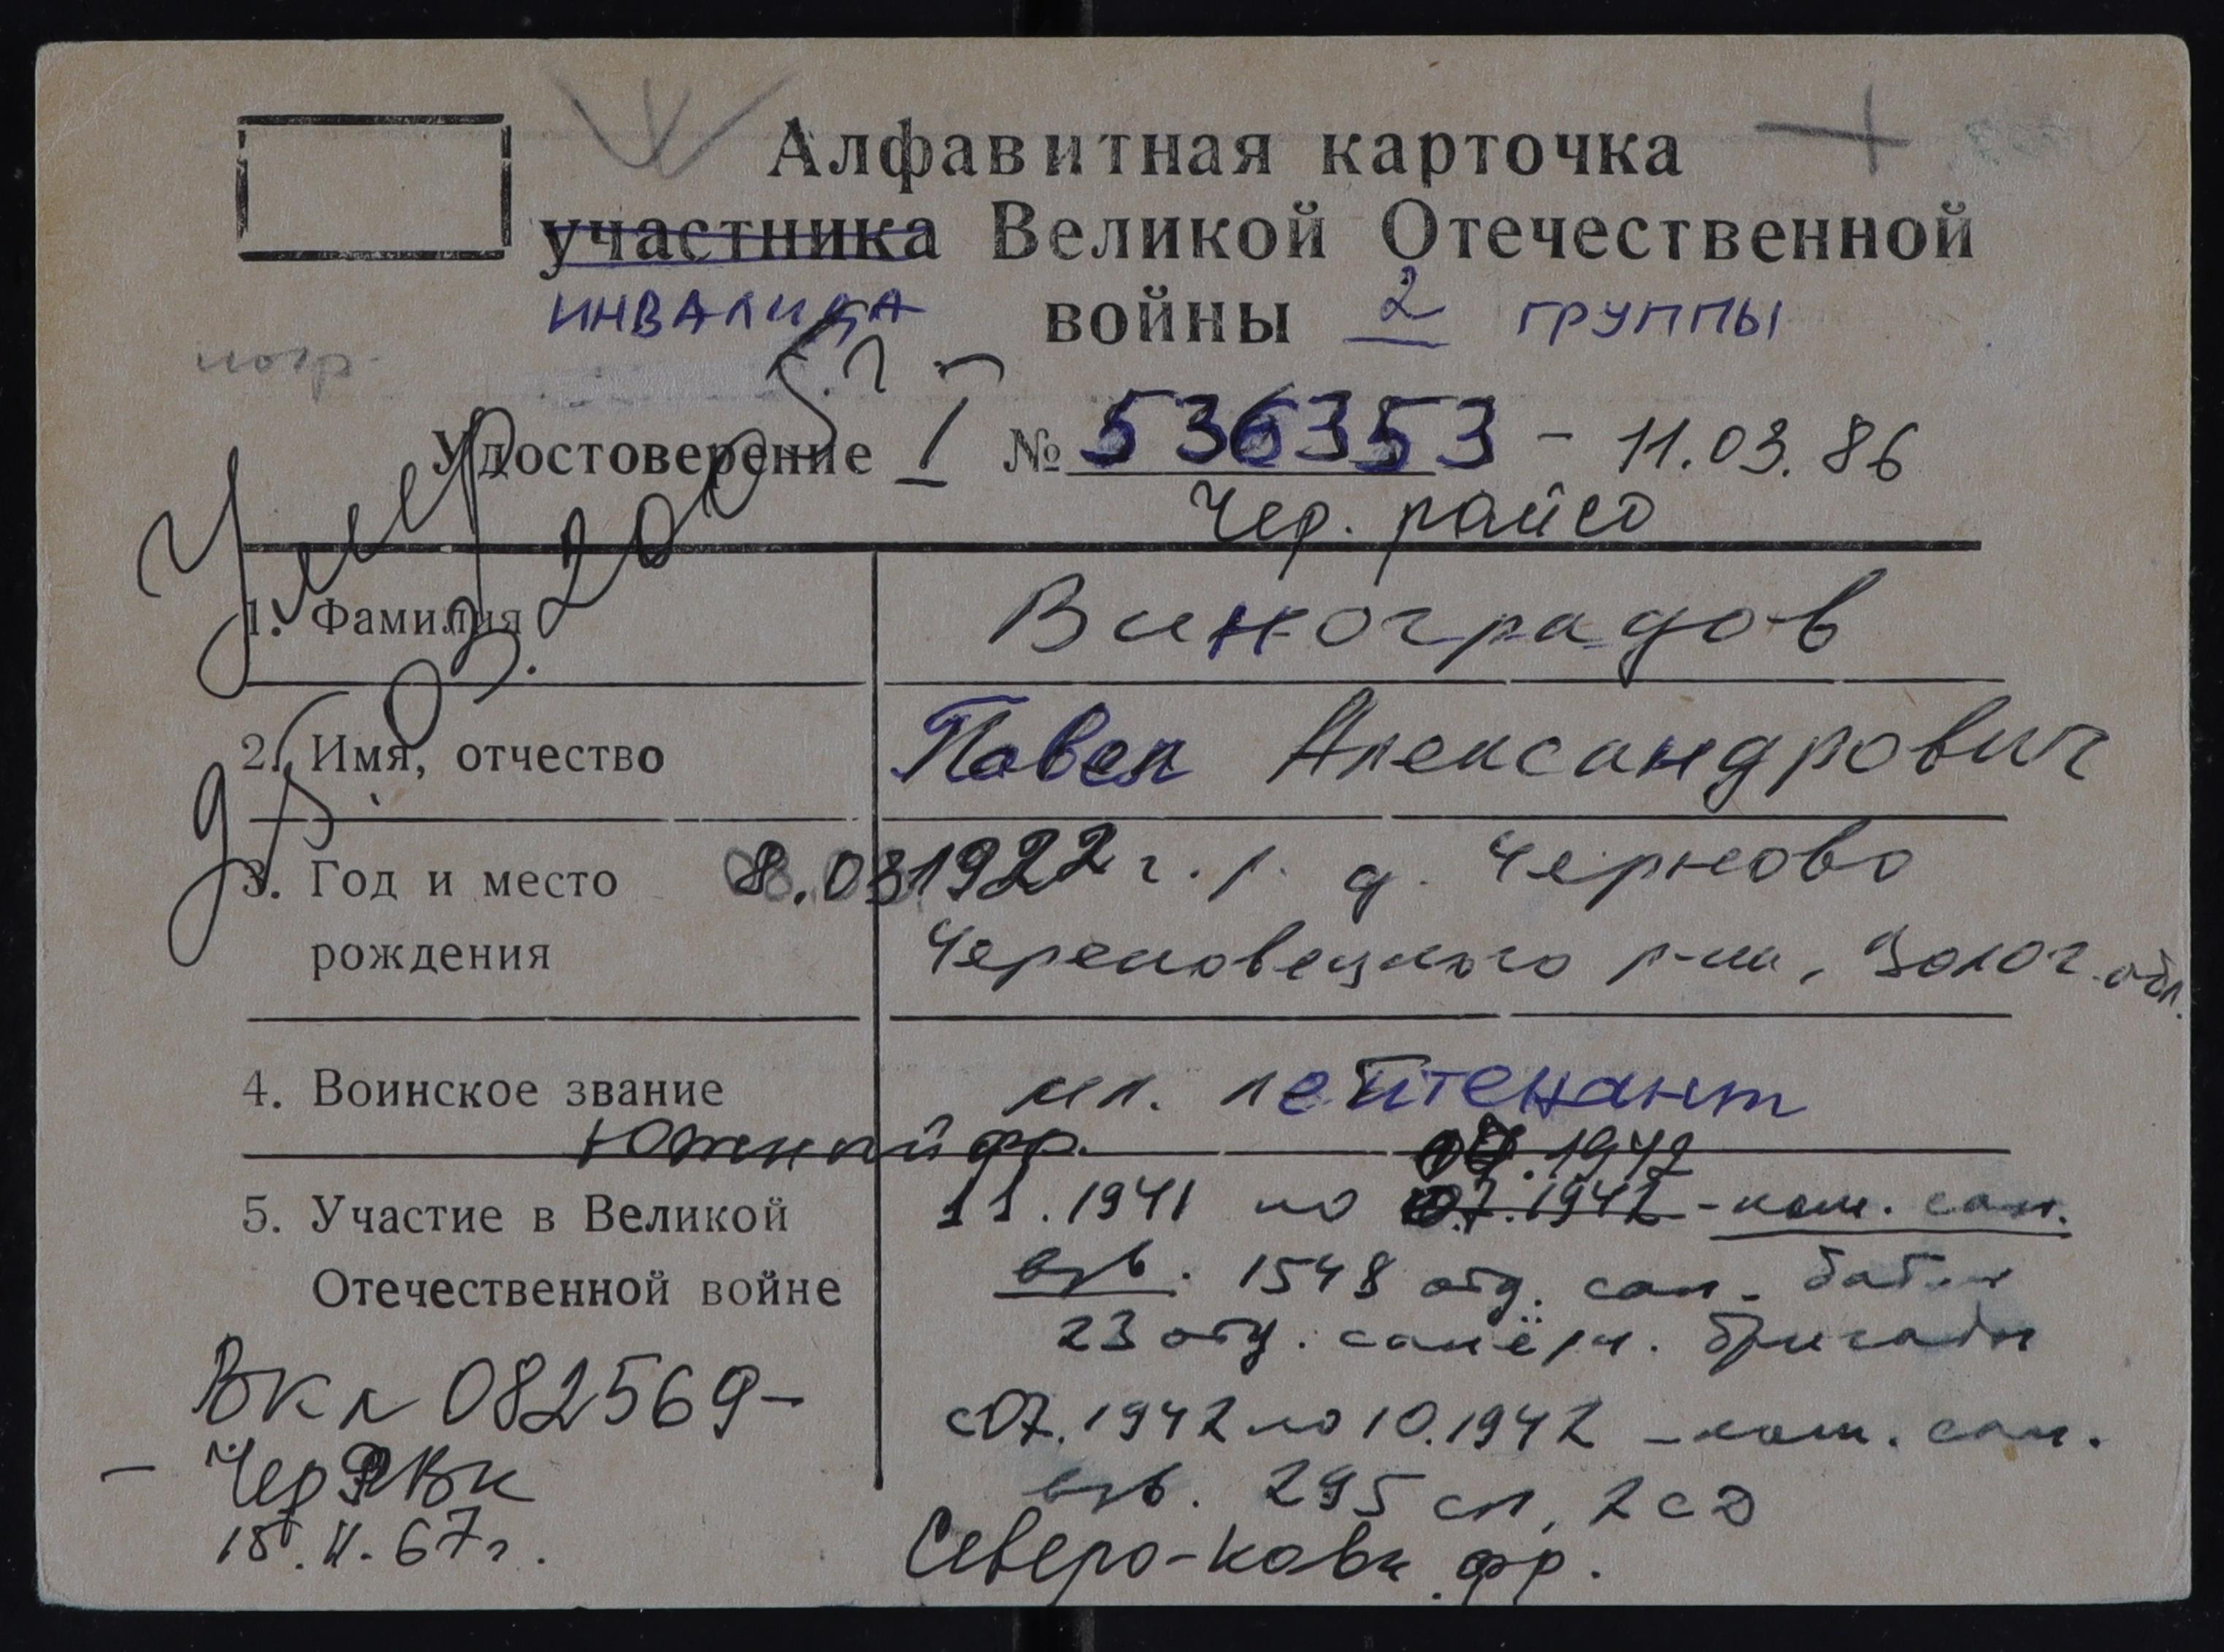 Алфавитная карточка
участника Великой Отечественной
ИНВАЛИДА войны 2 группы
Удостоверение I № 536353 - 11.03.86
Чер. райсо
Умер 20
03.
1. Фамилия Виноградов
2. Имя, отчество Павел Александрович
3. Год и место 8.03 1922 г.р. д. Черново
рождения Череповецкого р-на, Волог. обл.
4. Воинское звание мл. лейтенант
Южный фр. 07.1942
5. Участие в Великой 11.1941 по 07.1942 - ком. сап.
Отечественной войне взв. 1548 отд. сап. бат-на
23 отд. сапёрн. бригады
ВК № 082569-
с 07.1942 по 10.1942 - ком. сап.
- Чер РВК
взв. 295 сп, 2 сд
15.II.67г.
Северо-кавк. фр.